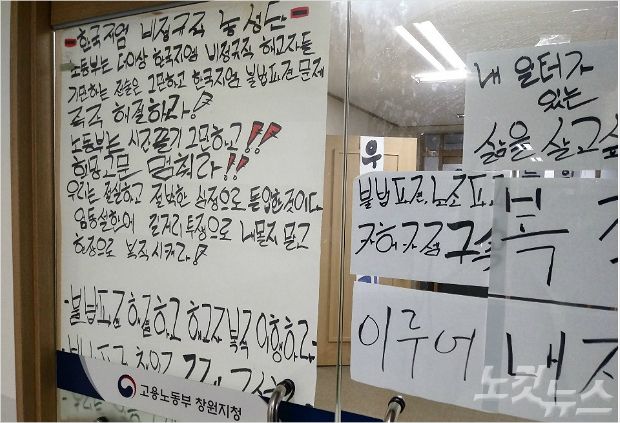 한국지엠 비정규직 농성단
노동부는 더이상 한국지엠 비정규직 해고자들
기만하는 짓은 그만하고 한국지엠 불법파견문제
즉각 해결하라!
노동부는 시간끌기 그만하고!!
희망고문 멈춰라!!
우리는 절실하고 절박한 심정으로 돌입한것이다
엄동설한에 길거리투쟁으로 내몰지 말고
현장으로 복직시켜라!
-불법파견 해결하고 해고자복직 이행하라-
불법파견
고용노동부 창원지청
내 일터가
있는
삶을 살고싶
우
불법파견, 노조파
카허카젬 구속
복직
이루어
내자
노컷뉴스